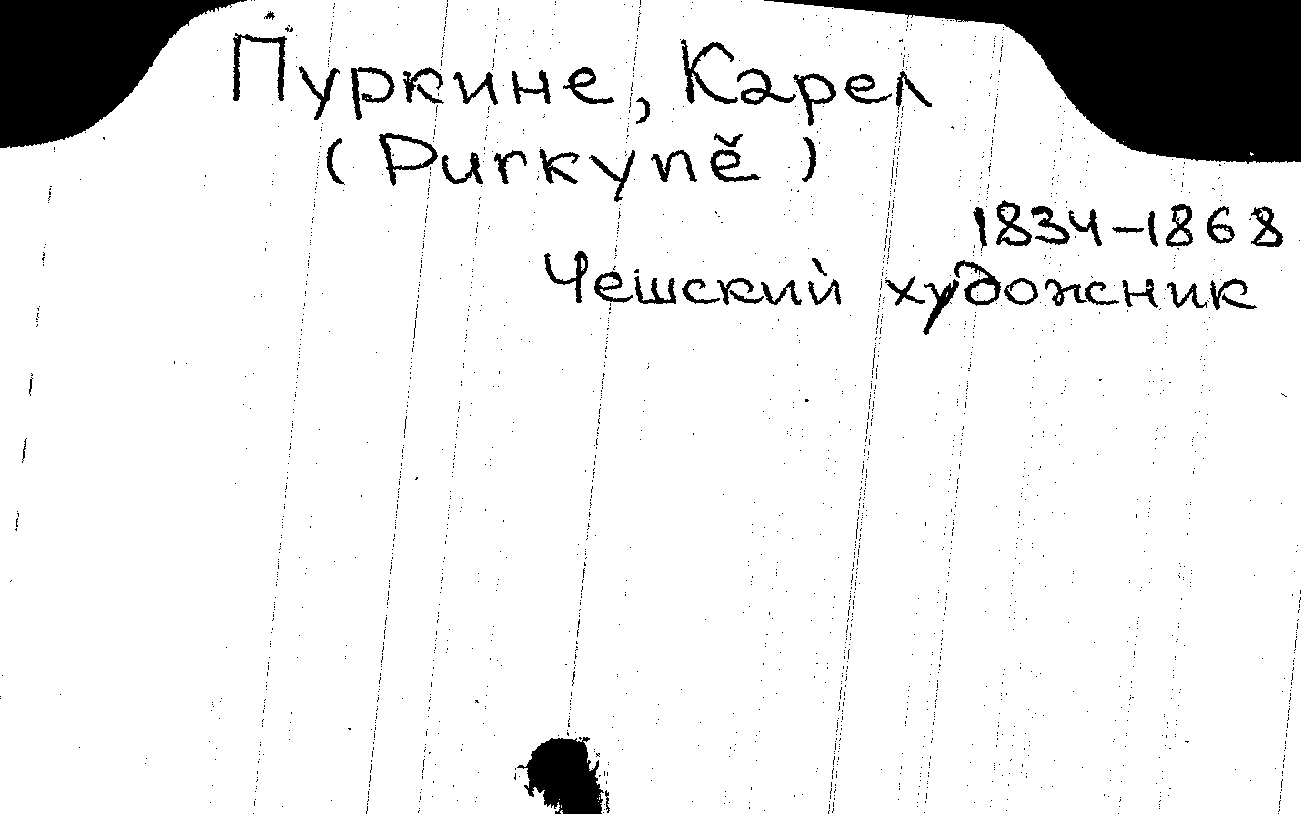 Пуркине, Карел
(Purkyně)
1834-1868
Чешский художник